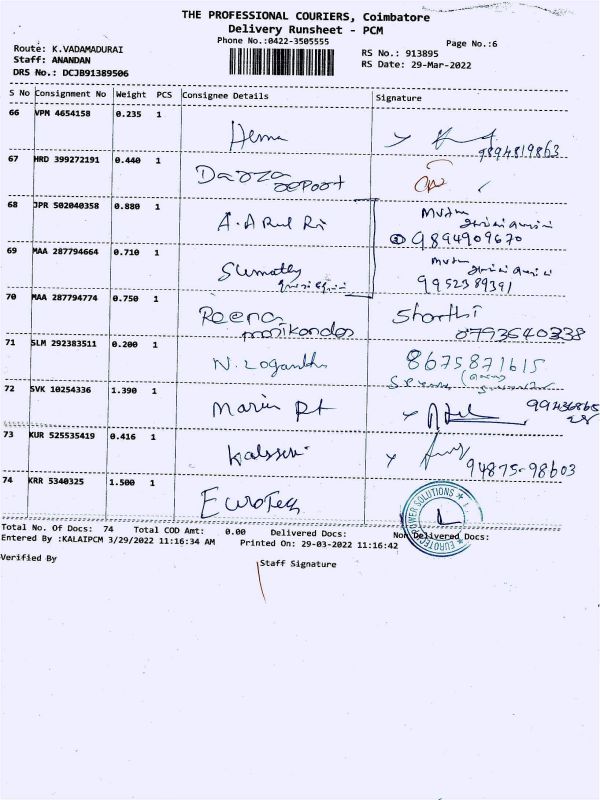 THE PROFESSIONAL COURIERS, Coimbatore
Delivery Runsheet - PCM
Phone No.:0422-3505555
Page No.:6
Route: K.VADAMADURAI
Staff: ANANDAN
DRS No.: DCJB91389506
RS No.: 913895
RS Date: 29-Mar-2022
S No Consignment No Weight PCS Consignee Details Signature
66 VPM 4654158 0.235 1
Hema
9894819863
67 HRD 399272191 0.440 1
68 JPR 502040358 0.880 1
9894909670
69 MAA 287794664 0.710 1
Sumathy
9952389391
70 MAA 287794774 0.750 1
Reena
manikandas
Sharthi
8793640338
71 SLM 292383511 0.200 1
8675871615
72 SVK 10254336 1.390 1
73 KUR 525535419 0.416 1
94875-98603
74 KRR 5340325 1.500 1
Euroteq
EUROTEQ POWER SOLUTIONS
Total No. Of Docs: 74 Total COD Amt: 0.00 Delivered Docs: Non Delivered Docs:
Entered By :KALAIPCM 3/29/2022 11:16:34 AM Printed On: 29-03-2022 11:16:42
Verified By
Staff Signature